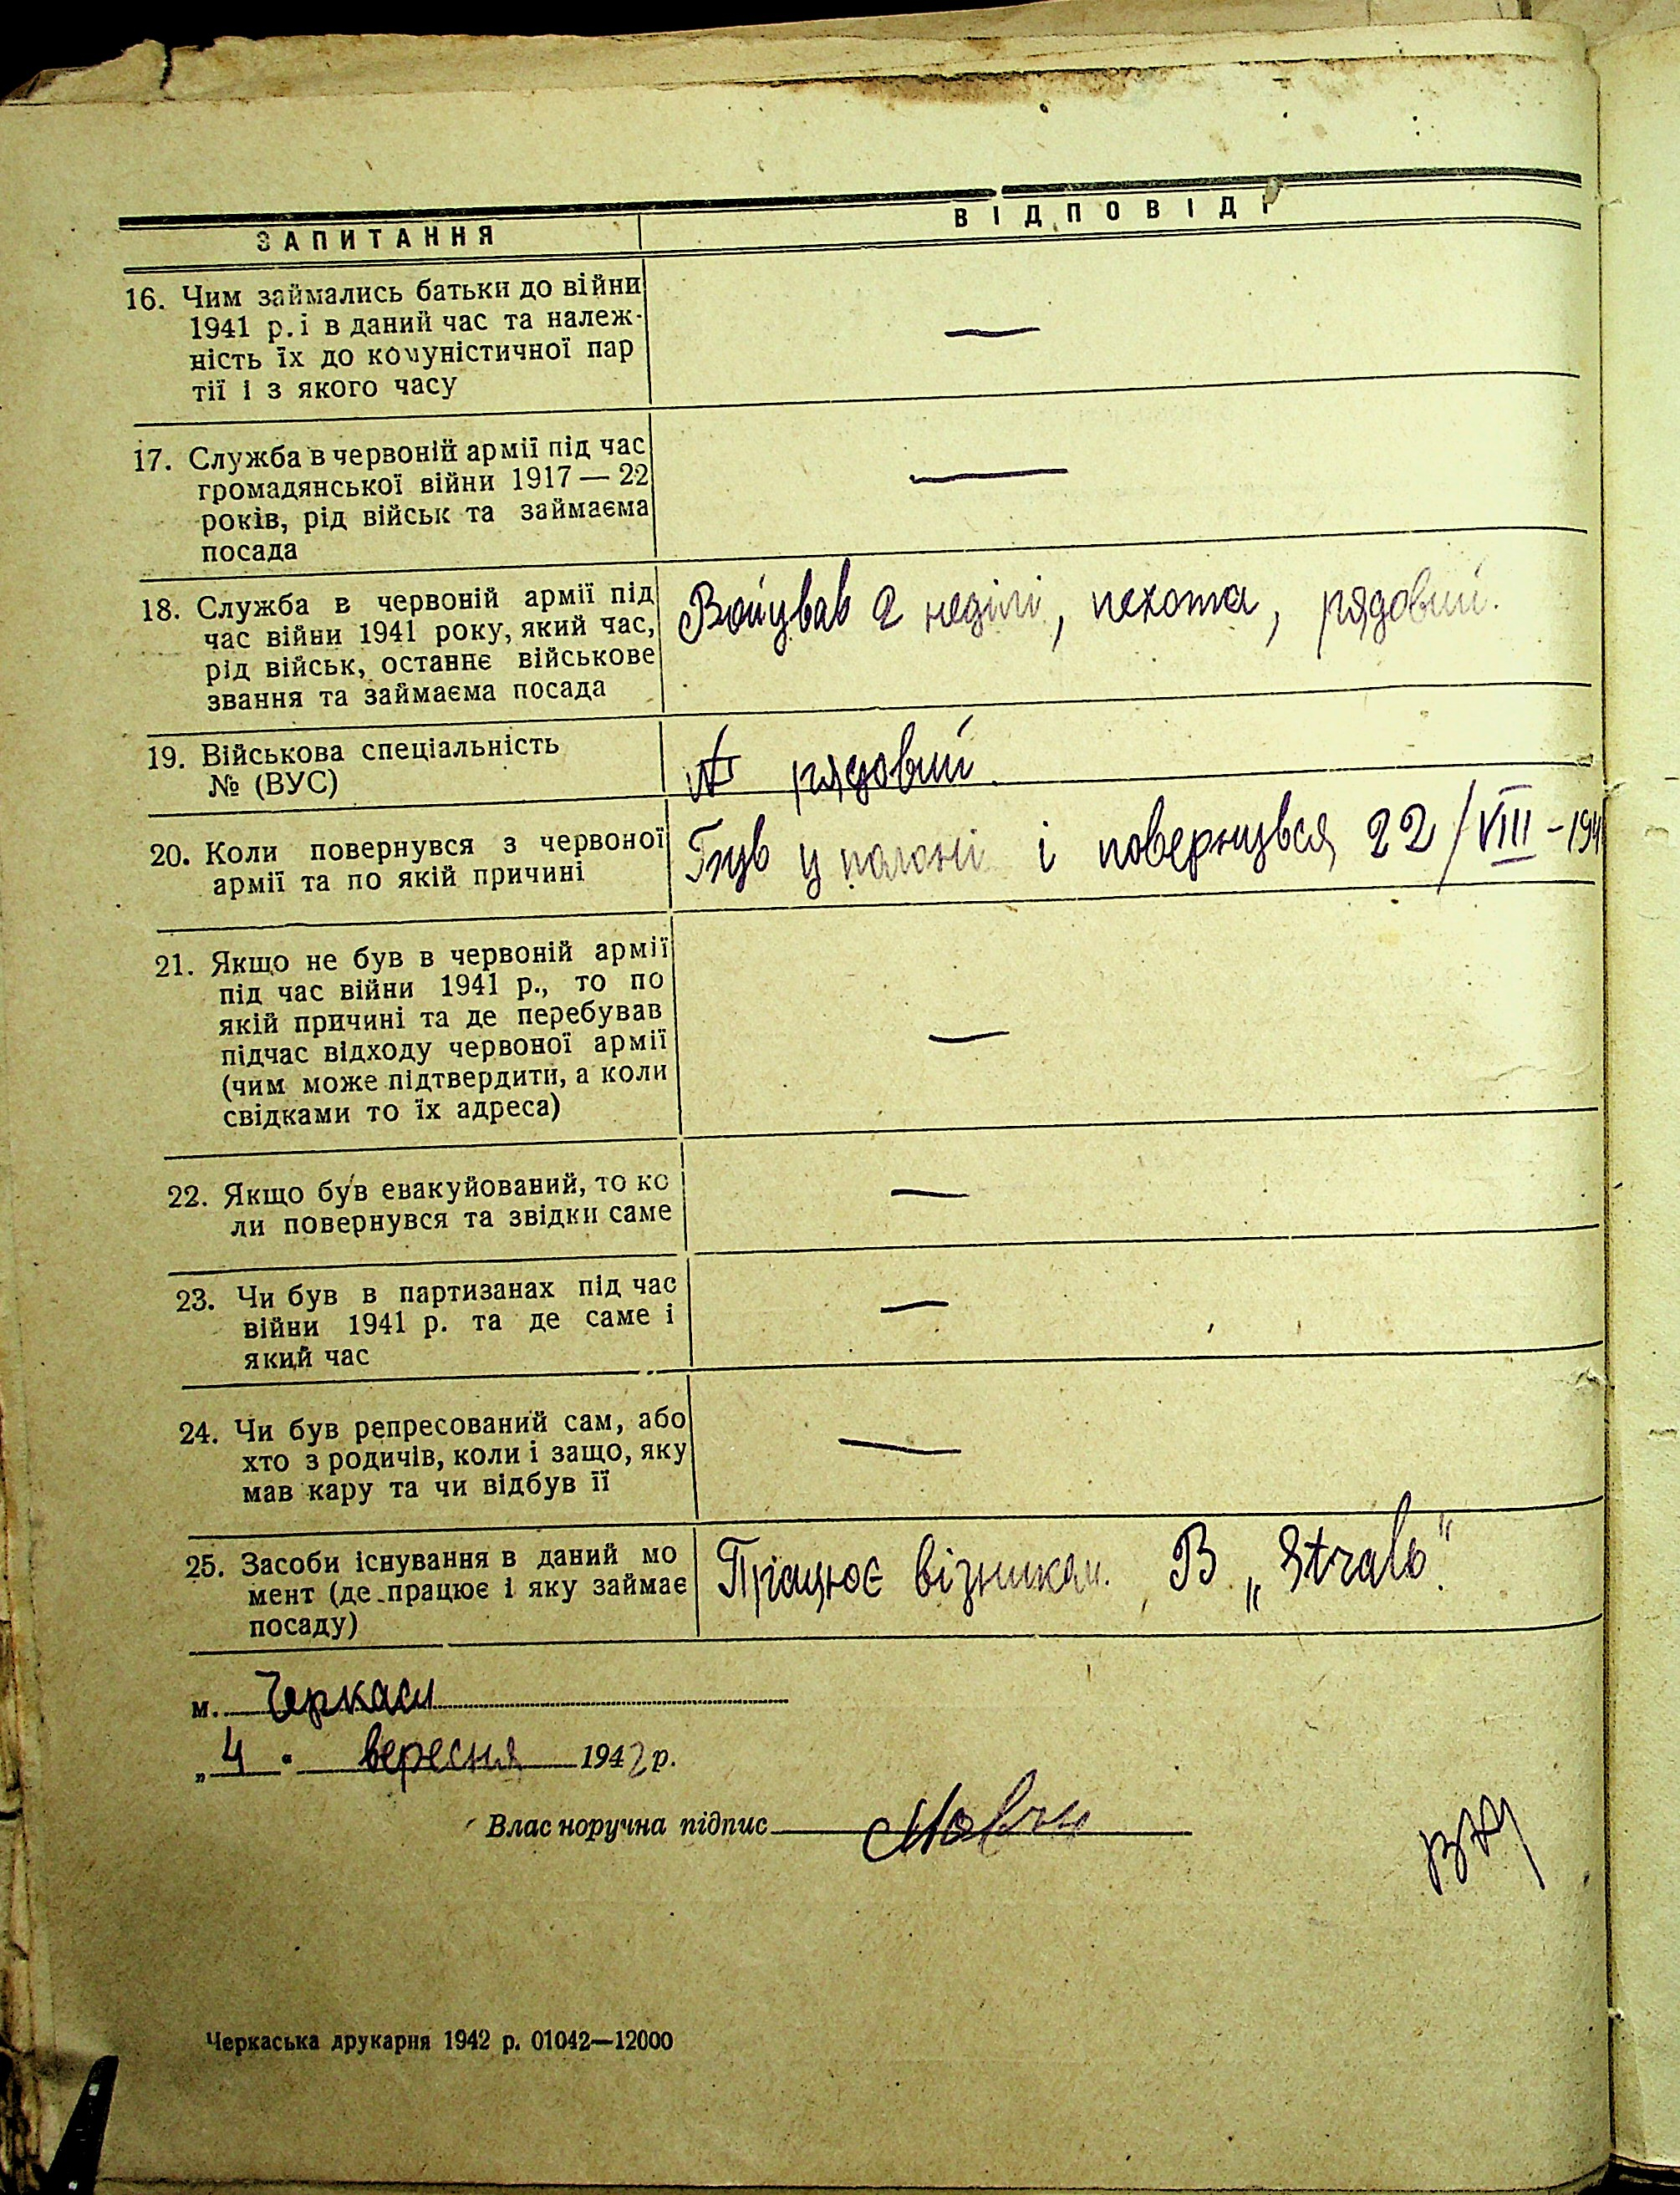 ЗАПИТАННЯ
ВІДПОВІДІ
16. Чим займались батьки до війни
1941 р. і в даний час та належ-
ність їх до комуністичної пар
тії і з якого часу
—
17. Служба в червоній армії під час
громадянської війни 1917 — 22
років, рід військ та займаєма
посада
—
18. Служба в червоній армії під
час війни 1941 року, який час,
рід військ, останнє військове
звання та займаєма посада
Воював 2 неділі, пехота, рядовий.
19. Військова спеціальність
№ (ВУС)
рядовий
20. Коли повернувся з червоної
армії та по якій причині
Був у полоні і повернувся 22/VIII-194
21. Якщо не був в червоній армії
під час війни 1941 р., то по
якій причині та де перебував
підчас відходу червоної армії
(чим може підтвердити, а коли
свідками то їх адреса)
—
22. Якщо був евакуйований, то ко
ли повернувся та звідки саме
—
23. Чи був в партизанах під час
війни 1941 р. та де саме і
який час
—
24. Чи був репресований сам, або
хто з родичів, коли і защо, яку
мав кару та чи відбув її
—
25. Засоби існування в даний мо
мент (де працює і яку займає
посаду)
Працює візником. В „Strab"
м. Черкаси
„4" вересня 1942 р.
Власноручна підпис
Черкаська друкарня 1942 р. 01042—12000